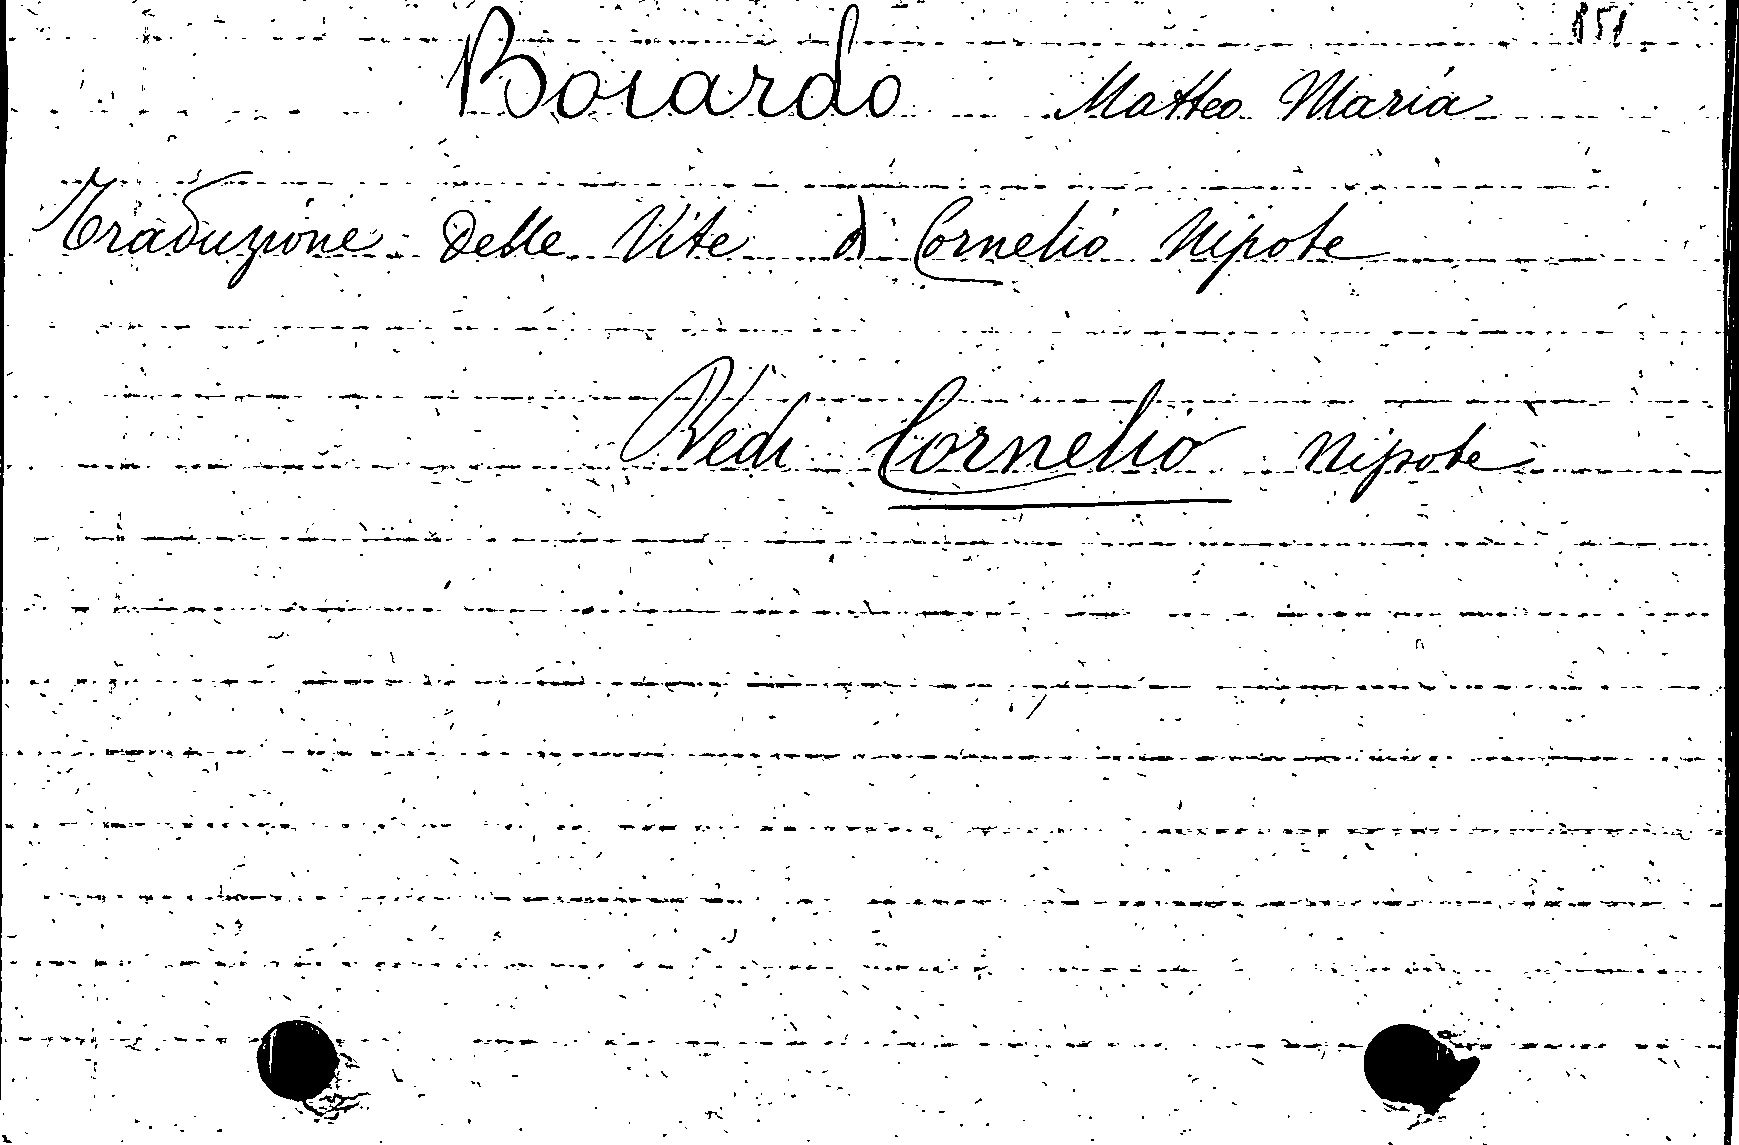 851
Boiardo Matteo Maria
Traduzione delle Vite di Cornelio Nipote
Vedi Cornelio Nipote